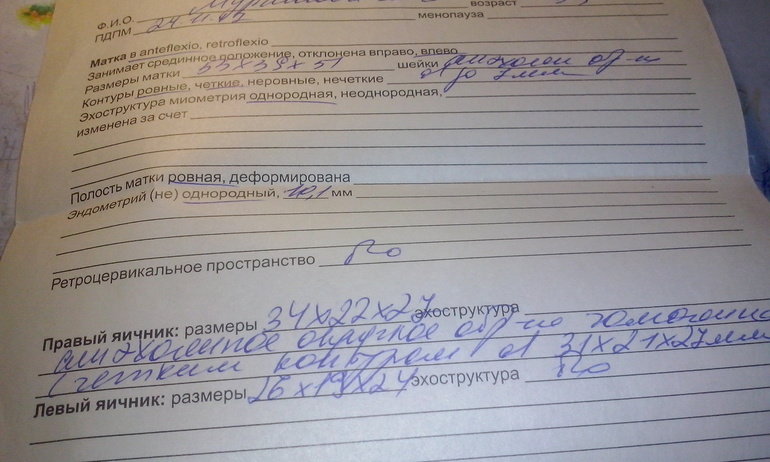 Ф.И.О. возраст
ПДПМ 24.11.13 менопауза
Матка в anteflexio, retroflexio
Занимает срединное положение, отклонена вправо, влево
Размеры матки шейки анэхоген обр-я
Контуры ровные, четкие, неровные, нечеткие до 7 мм
Эхоструктура миометрия однородная, неоднородная,
изменена за счет
Полость матки ровная, деформирована
Эндометрий (не) однородный, 10,1 мм
Ретроцервикальное пространство
Правый яичник: размеры 34х22х27 эхоструктура
анэхогенное округлое обр-е
с четким контуром d 31х21х27мм
Левый яичник: размеры 26х19х24 эхоструктура